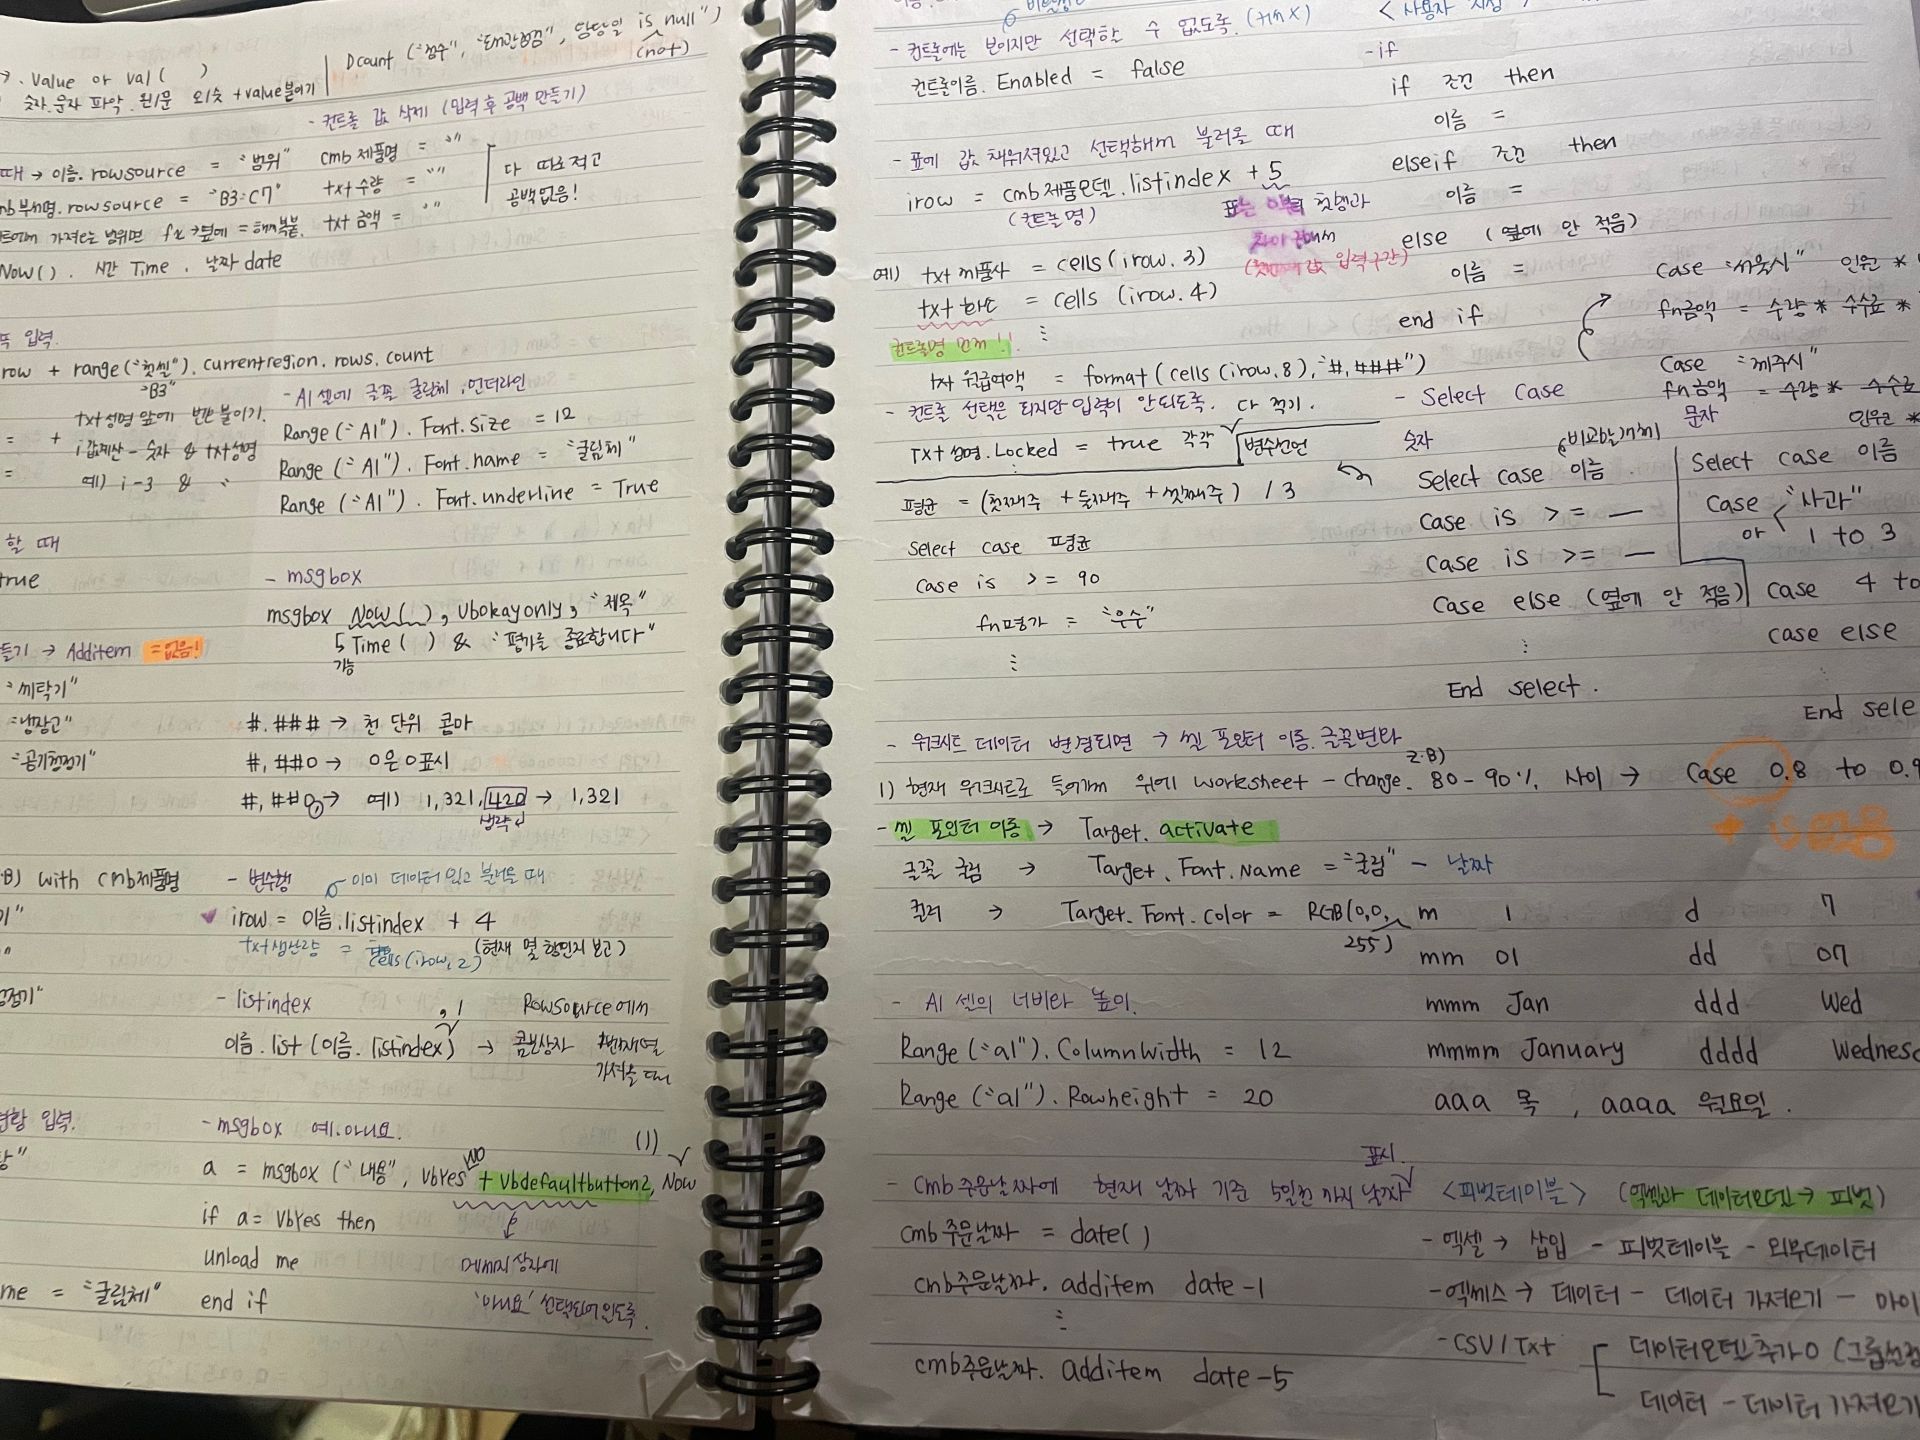 Dcount ("점수", "태관형점", 담당일 is null")
(not)
. value or val ( )
숫자.문자 파악. 왼/문 오/숫 + value붙이기
- 컨트롤 값 삭제 (입력 후 공백 만들기)
때 → 이름. rowsource = "범위"
cmb 제품명 = ""
txt 수량 = ""
txt 금액 = ""
다 따로 적고
공백없음!
mb부서명. rowsource = "B3:C7"
Now( ). 시간 Time. 날짜 date
입력.
row + range("첫셀"). currentregion. rows. count
"B3"
txt성명 앞에 번호 붙이기.
i 값계산 - 숫자 & txt성명
예) i-3 & "
- A1 셀에 글꼴 굴림체, 언더라인
Range ("A1"). Font. size = 12
Range ("A1"). Font. name = "굴림체"
Range ("A1"). Font. underline = True
할 때
true
- msgbox
msgbox Now( ), vbokayonly, "제목"
Time ( ) & "평가를 종료합니다"
가능
들기 → Additem =없음!
"세탁기"
"냉장고"
"공기청정기"
#.### → 천 단위 콤마
#, ##0 → 0은 0표시
#, ##0, → 예) 1,321,420 → 1,321
생략
B) with cmb제품명
- 변수행
이미 데이터 있고 불러올 때
irow = 이름.listindex + 4
txt생산량 = cells(irow, 2) (현재 몇 행인지 보고)
- listindex
, 1
Rowsource에서
이름.list (이름. listindex) → 콤보상자 1번째열
가져올 때
현황 입력.
- msgbox 예.아니요.
(1)
a = msgbox ("내용", vbYesNo + vbdefaultbutton2, Now
if a= vbYes then
unload me
end if
메세지 상자에
'아니요' 선택되어 있도록.
me = "굴림체"
- 컨트롤에는 보이지만 선택할 수 없도록. (tin X)
컨트롤이름. Enabled = false
- 표에 값 채워져있고 선택해서 불러올 때
irow = cmb제품모델.listindex + 5
(컨트롤명)
표는 0부터 첫행과
차이 구해서
값 입력구간)
예) txt제품사 = cells(irow. 3)
txt한도 = cells (irow. 4)
컨트롤명 먼저!!
txt 월급여액 = format (cells (irow, 8), "#, ###")
- 컨트롤 선택은 되지만 입력이 안되도록. 다 적기.
Txt 성명. Locked = true 각각
변수선언
평균 = (첫째주 + 둘째주 + 셋째주) / 3
Select case 평균
case is >= 90
fn평가 = "우수"
- 워크시트 데이터 변경되면 → 셀 포인터 이동. 글꼴변화
1) 현재 워크시트로 들어가서 위에 worksheet - change.
- 셀 포인터 이동 → Target. activate
글꼴 굴림 → Target. Font. Name = "굴림"
컬러 → Target. Font. color = RGB(0,0,
255)
- A1 셀의 너비와 높이.
Range ("a1"). ColumnWidth = 12
Range ("a1"). Rowheight = 20
표시.
- cmb주문날짜에 현재 날짜 기준 5일전 까지 날짜
cmb주문날짜 = date( )
cmb주문날짜. additem date -1
cmb주문날짜. additem date -5
< 사용자 지정
- if
if 조건 then
이름 =
elseif 조건 then
이름 =
else (옆에 안 적음)
이름 =
end if
case "서울시" 인원 *
fn금액 = 수량 * 수수료 *
Case "제주시"
fn금액 = 수량 * 수수료
인원 *
- Select case
숫자
비교할개체
Select case 이름.
Case is >= —
Case is >= —
Case else (옆에 안 적음)
End select.
문자
Select case 이름
Case "사과"
or 1 to 3
case 4 to
case else
End sele
2.B)
80 - 90% 사이 → Case 0.8 to 0.9
- 날짜
m 1 d 7
mm 01 dd 07
mmm Jan ddd Wed
mmmm January dddd Wednesd
aaa 목, aaaa 월요일.
<피벗테이블> (엑셀과 데이터모델 → 피벗)
- 엑셀 → 삽입 - 피벗테이블 - 외부데이터
- 엑세스 → 데이터 - 데이터 가져오기 -
- CSV / Txt
데이터모델 추가 O (그룹선정
데이터 - 데이터 가져오기